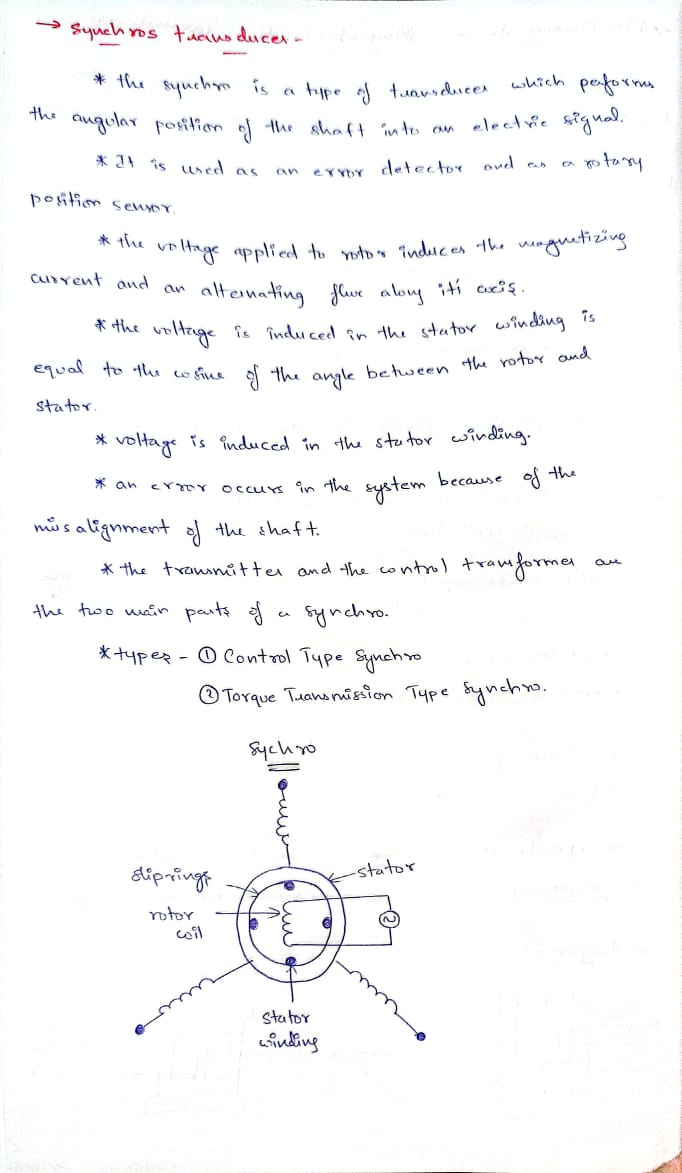 → Synchros transducer -
* the synchro is a type of transducer which performs
the angular position of the shaft into an electric signal.
* It is used as an error detector and as a rotary
position sensor.
* the voltage applied to rotor induces the magnetizing
current and an alternating flux along it's axis.
* the voltage is induced in the stator winding is
equal to the cosine of the angle between the rotor and
stator.
* voltage is induced in the stator winding.
* an error occurs in the system because of the
misalignment of the shaft.
* the transmitter and the control transformer are
the two main parts of a synchro.
* types - ① Control Type Synchro
② Torque Transmission Type Synchro.
Sychro
sliprings
stator
rotor
coil
stator
winding